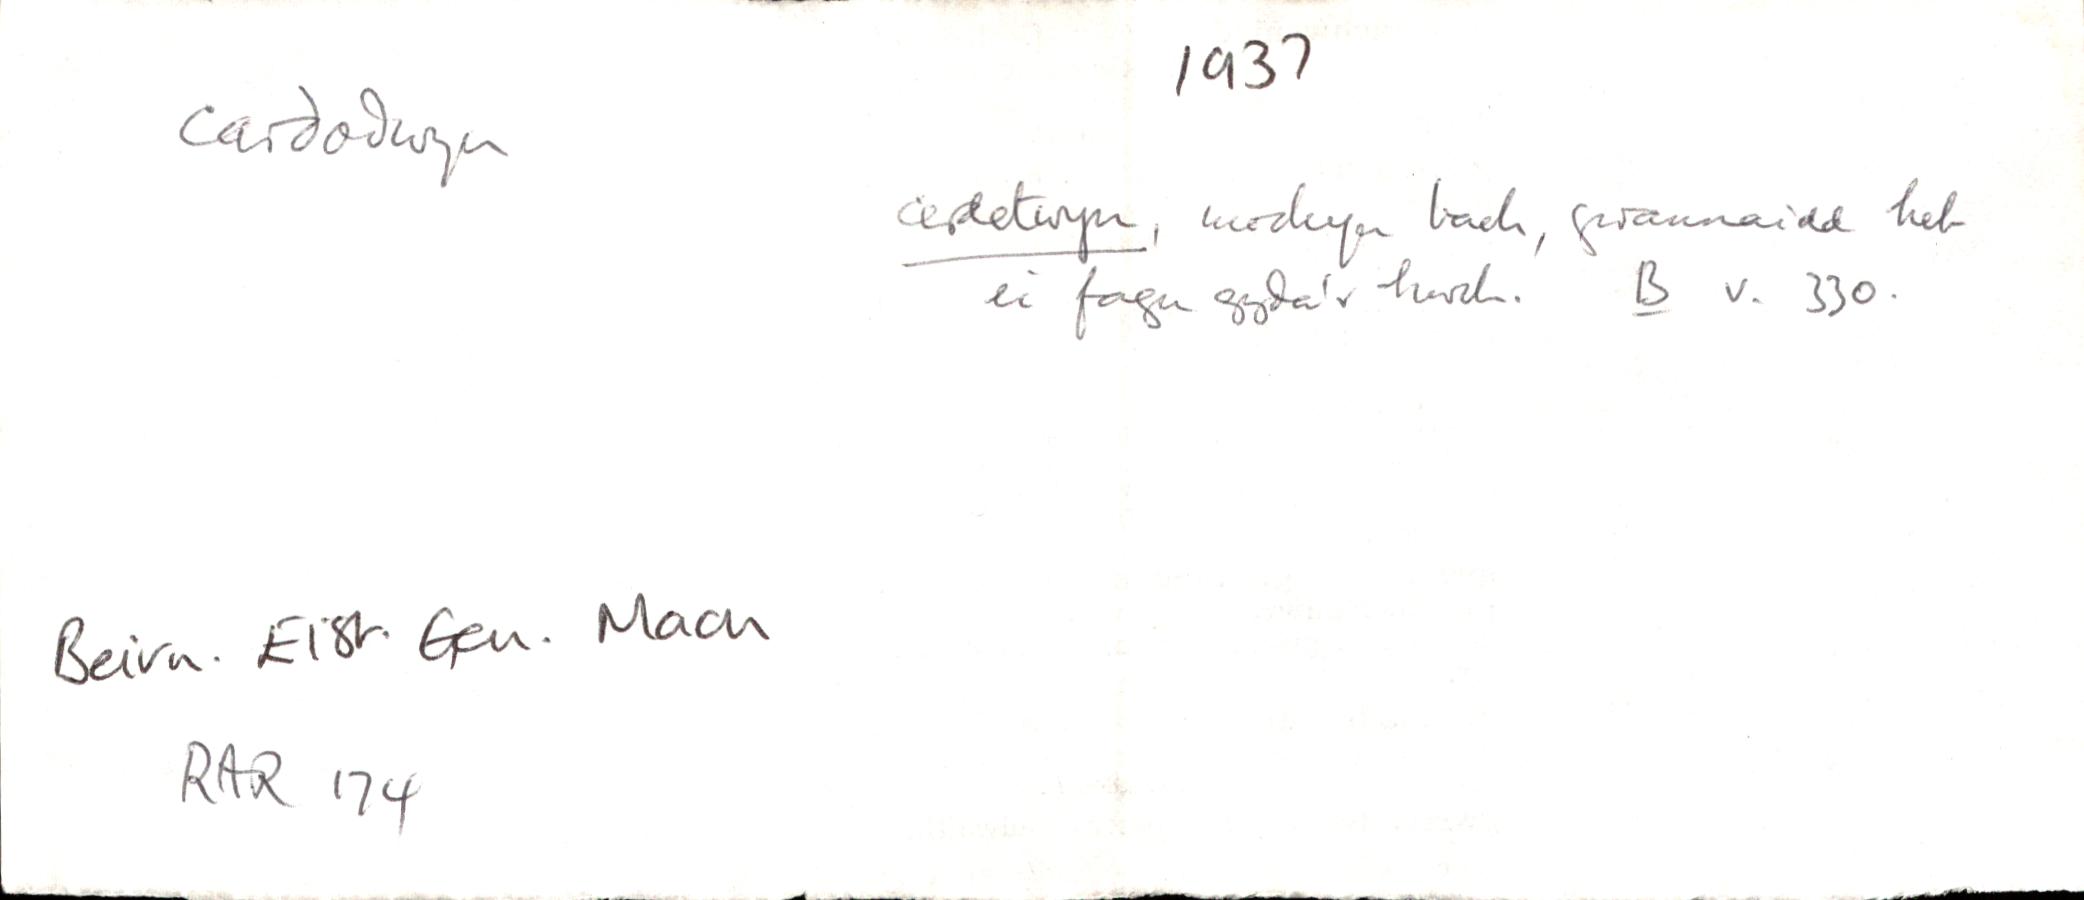 1937
cardodwyn
cerdetwyn, mochyn bach, gwannaidd heb
ei fagu gyda'r hwch. B v. 330.
Beirn. Eist. Gen. Macn
RAR 174